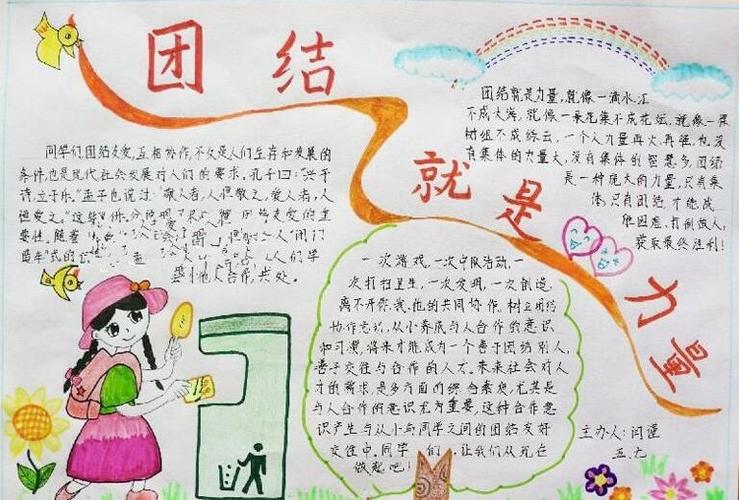 团结
就是
力量
同学们团结友爱,互相协作,不仅是人们生存和发展的
条件,也是现代社会发展对人们的要求。孔子曰:"兴于
诗,立于乐。"孟子也说过:"敬人者,人恒敬之,爱人者,人
恒爱之。"这
友爱的重
要性。随着
与他人合作,共处。
团结就是力量,就像一滴水汇
不成大海,就像一朵花集不成花坛,就像一棵
树组不成绿云,一个人力量再大再强,也没
有集体的力量大,没有集体的智慧多,团结
是一种庞大的力量,只有集
体,只有团结才能战
胜困难,打倒敌人,
获取最终胜利!
一次游戏,一次少队活动,一
次打扫卫生,一次发明,一次创造,
离不开你,我,他的共同协作。树立团结
协作意识,从小养成与人合作的意识
和习惯,将来才能成为一个善于团结别人,
善于交往与合作的人才。未来社会对人
才的需求,是多方面的综合素质,尤其是
与人合作的意识尤为重要,这种合作意
识产生与从小与同学之间的团结友好
交往中。同学们,让我们从现在
做起吧!
主办人:闫谨
五、九